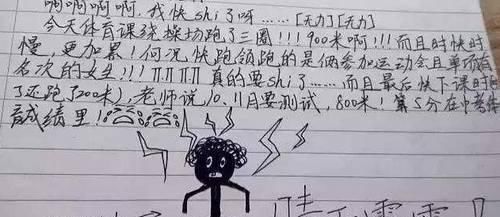 啊啊啊啊,我快shi了呀……[无力][无力]
今天体育课绕操场跑了三圈!!!900米啊!!!而且时快时
慢,更加累!何况,快跑领跑的是俩参加运动会且单项有
名次的女生!!!真的要shi了……而且最后快下课时
了还跑了200米),老师说,10、11月要测试,800米!第5分在中考
试成绩里!